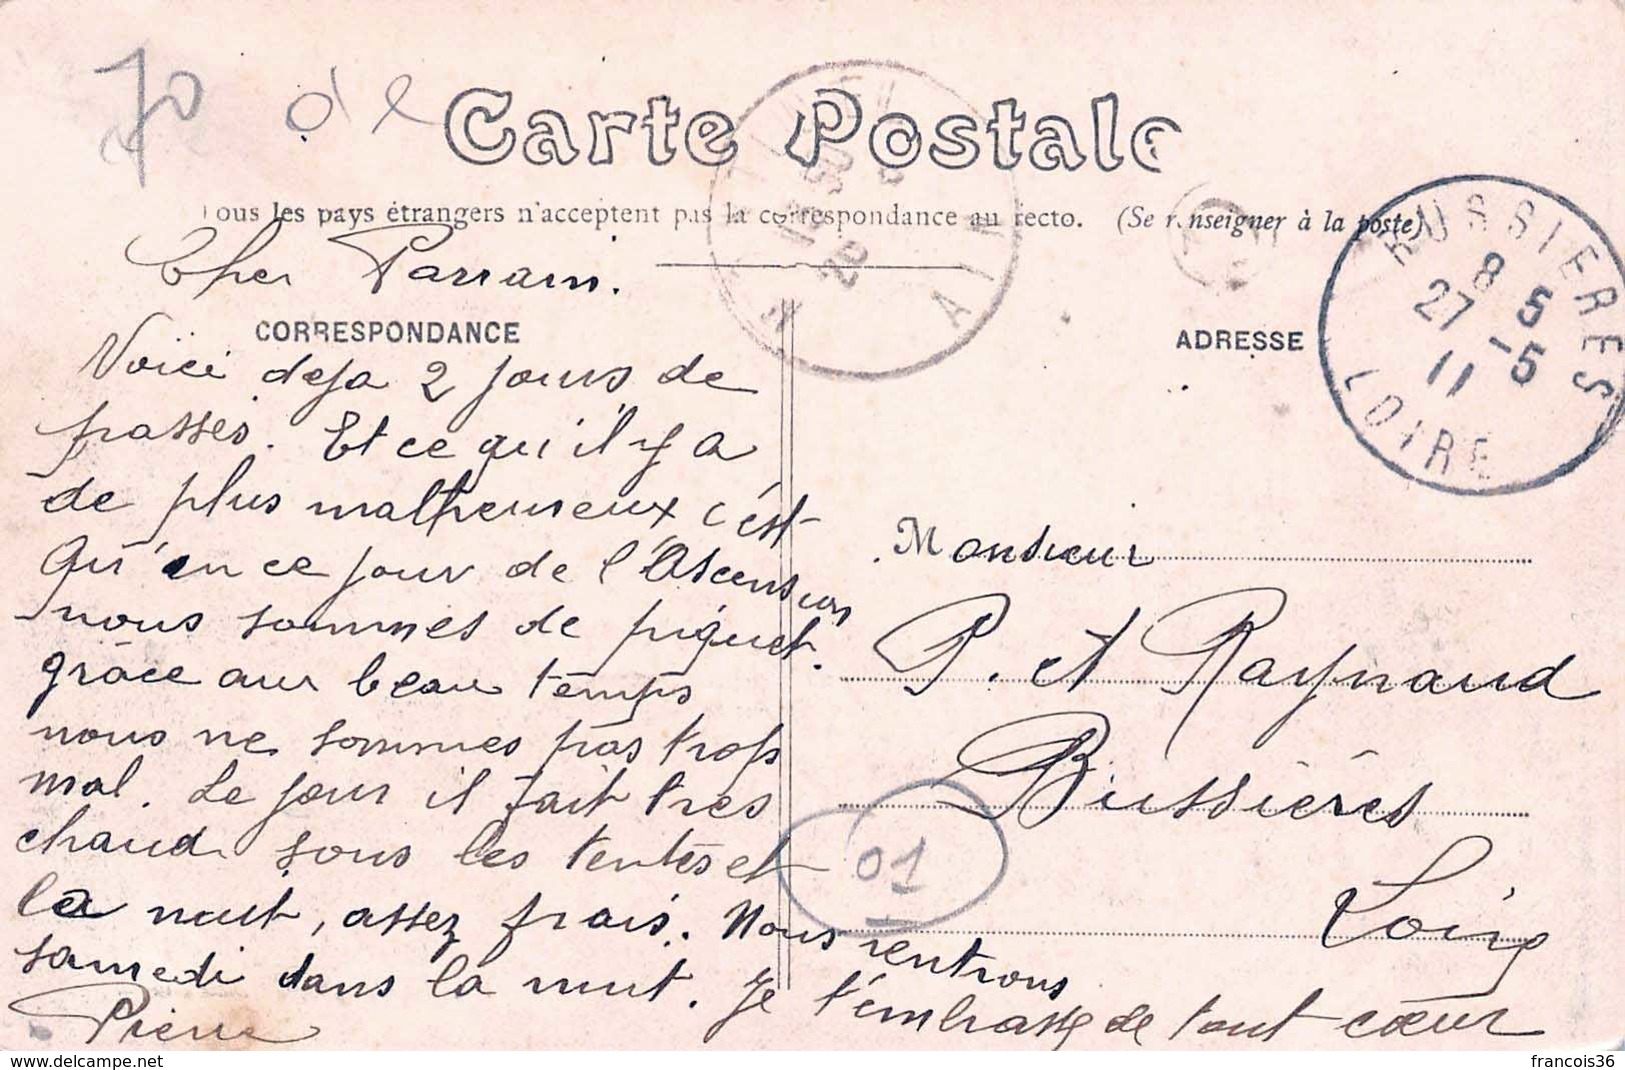 70 de
Carte Postale
Tous les pays étrangers n'acceptent pas la correspondance au recto. (Se renseigner à la poste)
Cher Parrain.
CORRESPONDANCE
Voici deja 2 jours de
passés. Et ce qu'il y a
de plus malheureux c'est
qu'en ce jour de l'Ascension
nous sommes de piquet.
grâce au beau temps
nous ne sommes pas trop
mal. Le jour il fait tres
chaud sous les tentes et
la nuit, assez frais. Nous rentrons
samedi dans la nuit. Je t'embrasse de tout cœur
Pierre
ADRESSE
BUSSIERES
8 5
27 -5
11
LOIRE
AIN
Monsieur
P. et Raynaud
Bussières
Loire
01
francois36